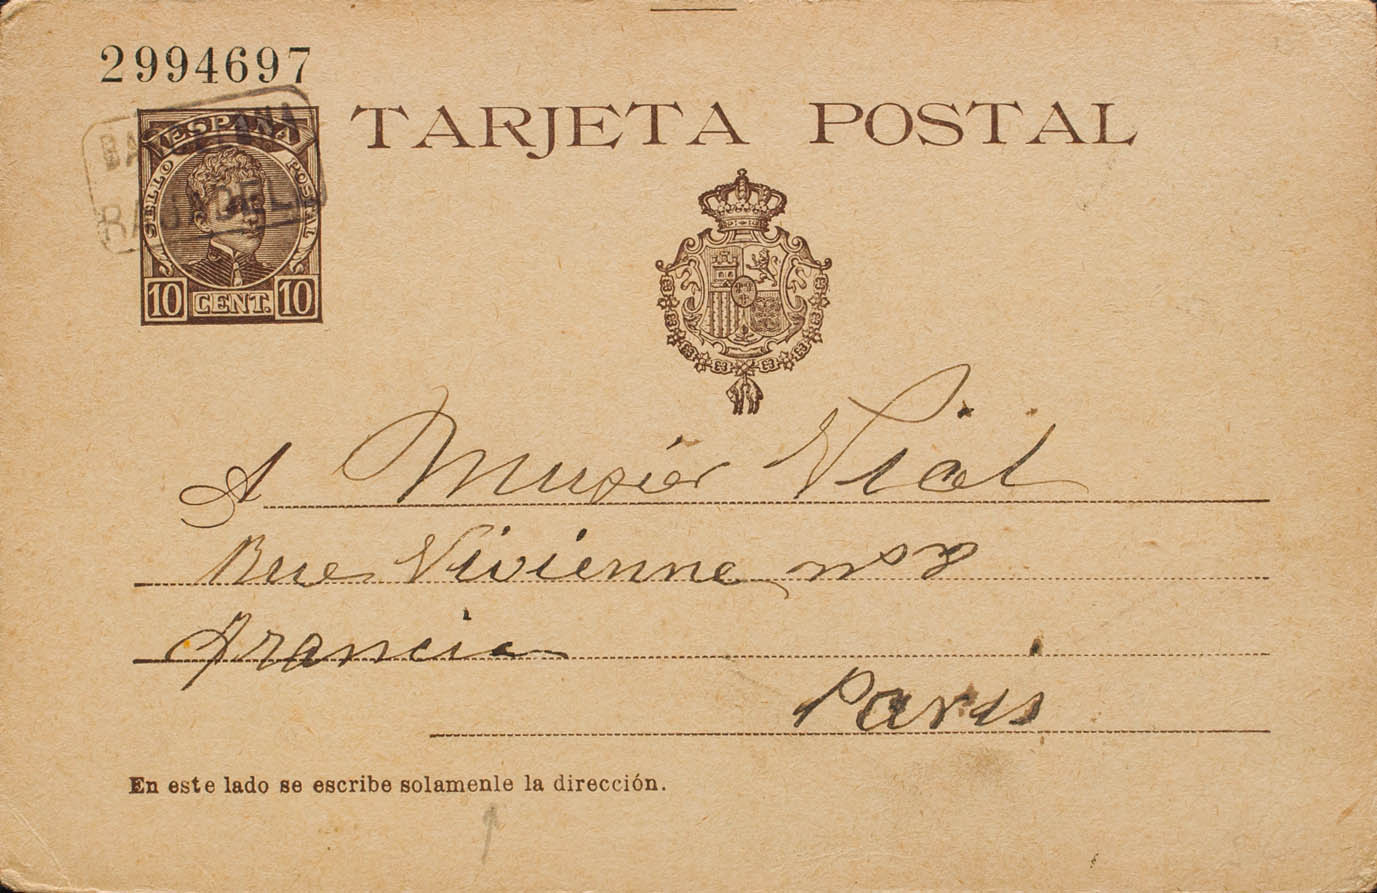 2994697
TARJETA POSTAL
ESPAÑA
SELLO POSTAL
10 CENT. 10
BARCELONA
RAJADELL
A Musier Vial
Rue Vivienne nº 8
Francia
Paris
En este lado se escribe solamenle la dirección.